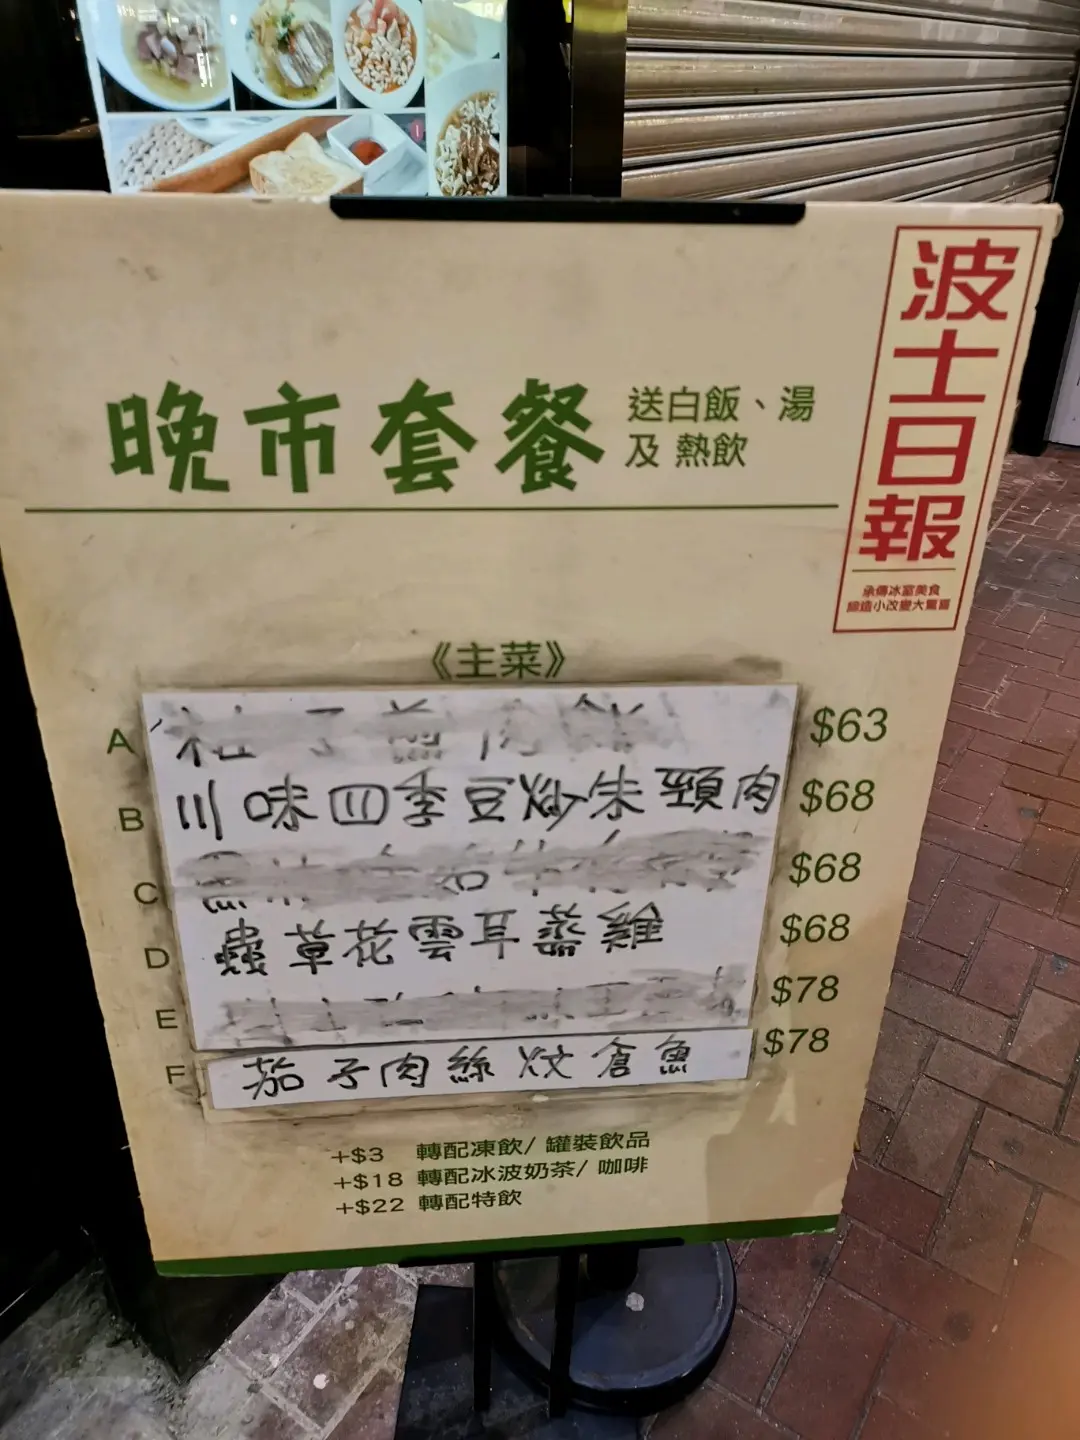 波士日報
承傳冰室美食
締造小改變大驚喜
晚市套餐
送白飯、湯
及 熱飲
《主菜》
A $63
B 川味四季豆炒朱頸肉 $68
C $68
D 蟲草花雲耳蒸雞 $68
E $78
F 茄子肉絲炆倉魚 $78
+$3 轉配凍飲/ 罐裝飲品
+$18 轉配冰波奶茶/ 咖啡
+$22 轉配特飲